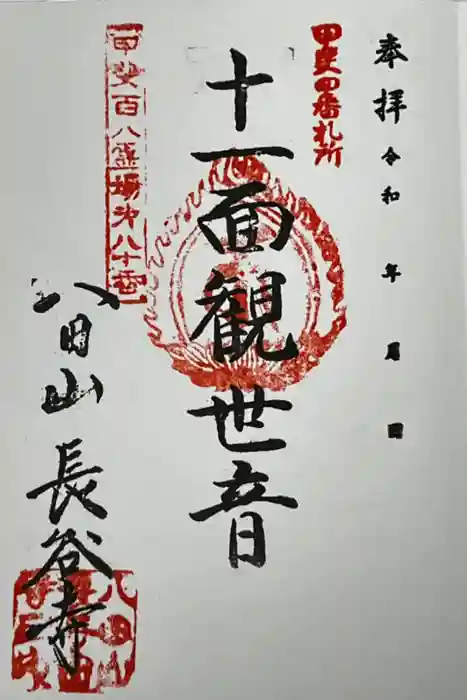 奉拝 令和 年 月 日
甲斐四番札所
十一面観世音
甲斐百八霊場第八十番
八日山 長谷寺